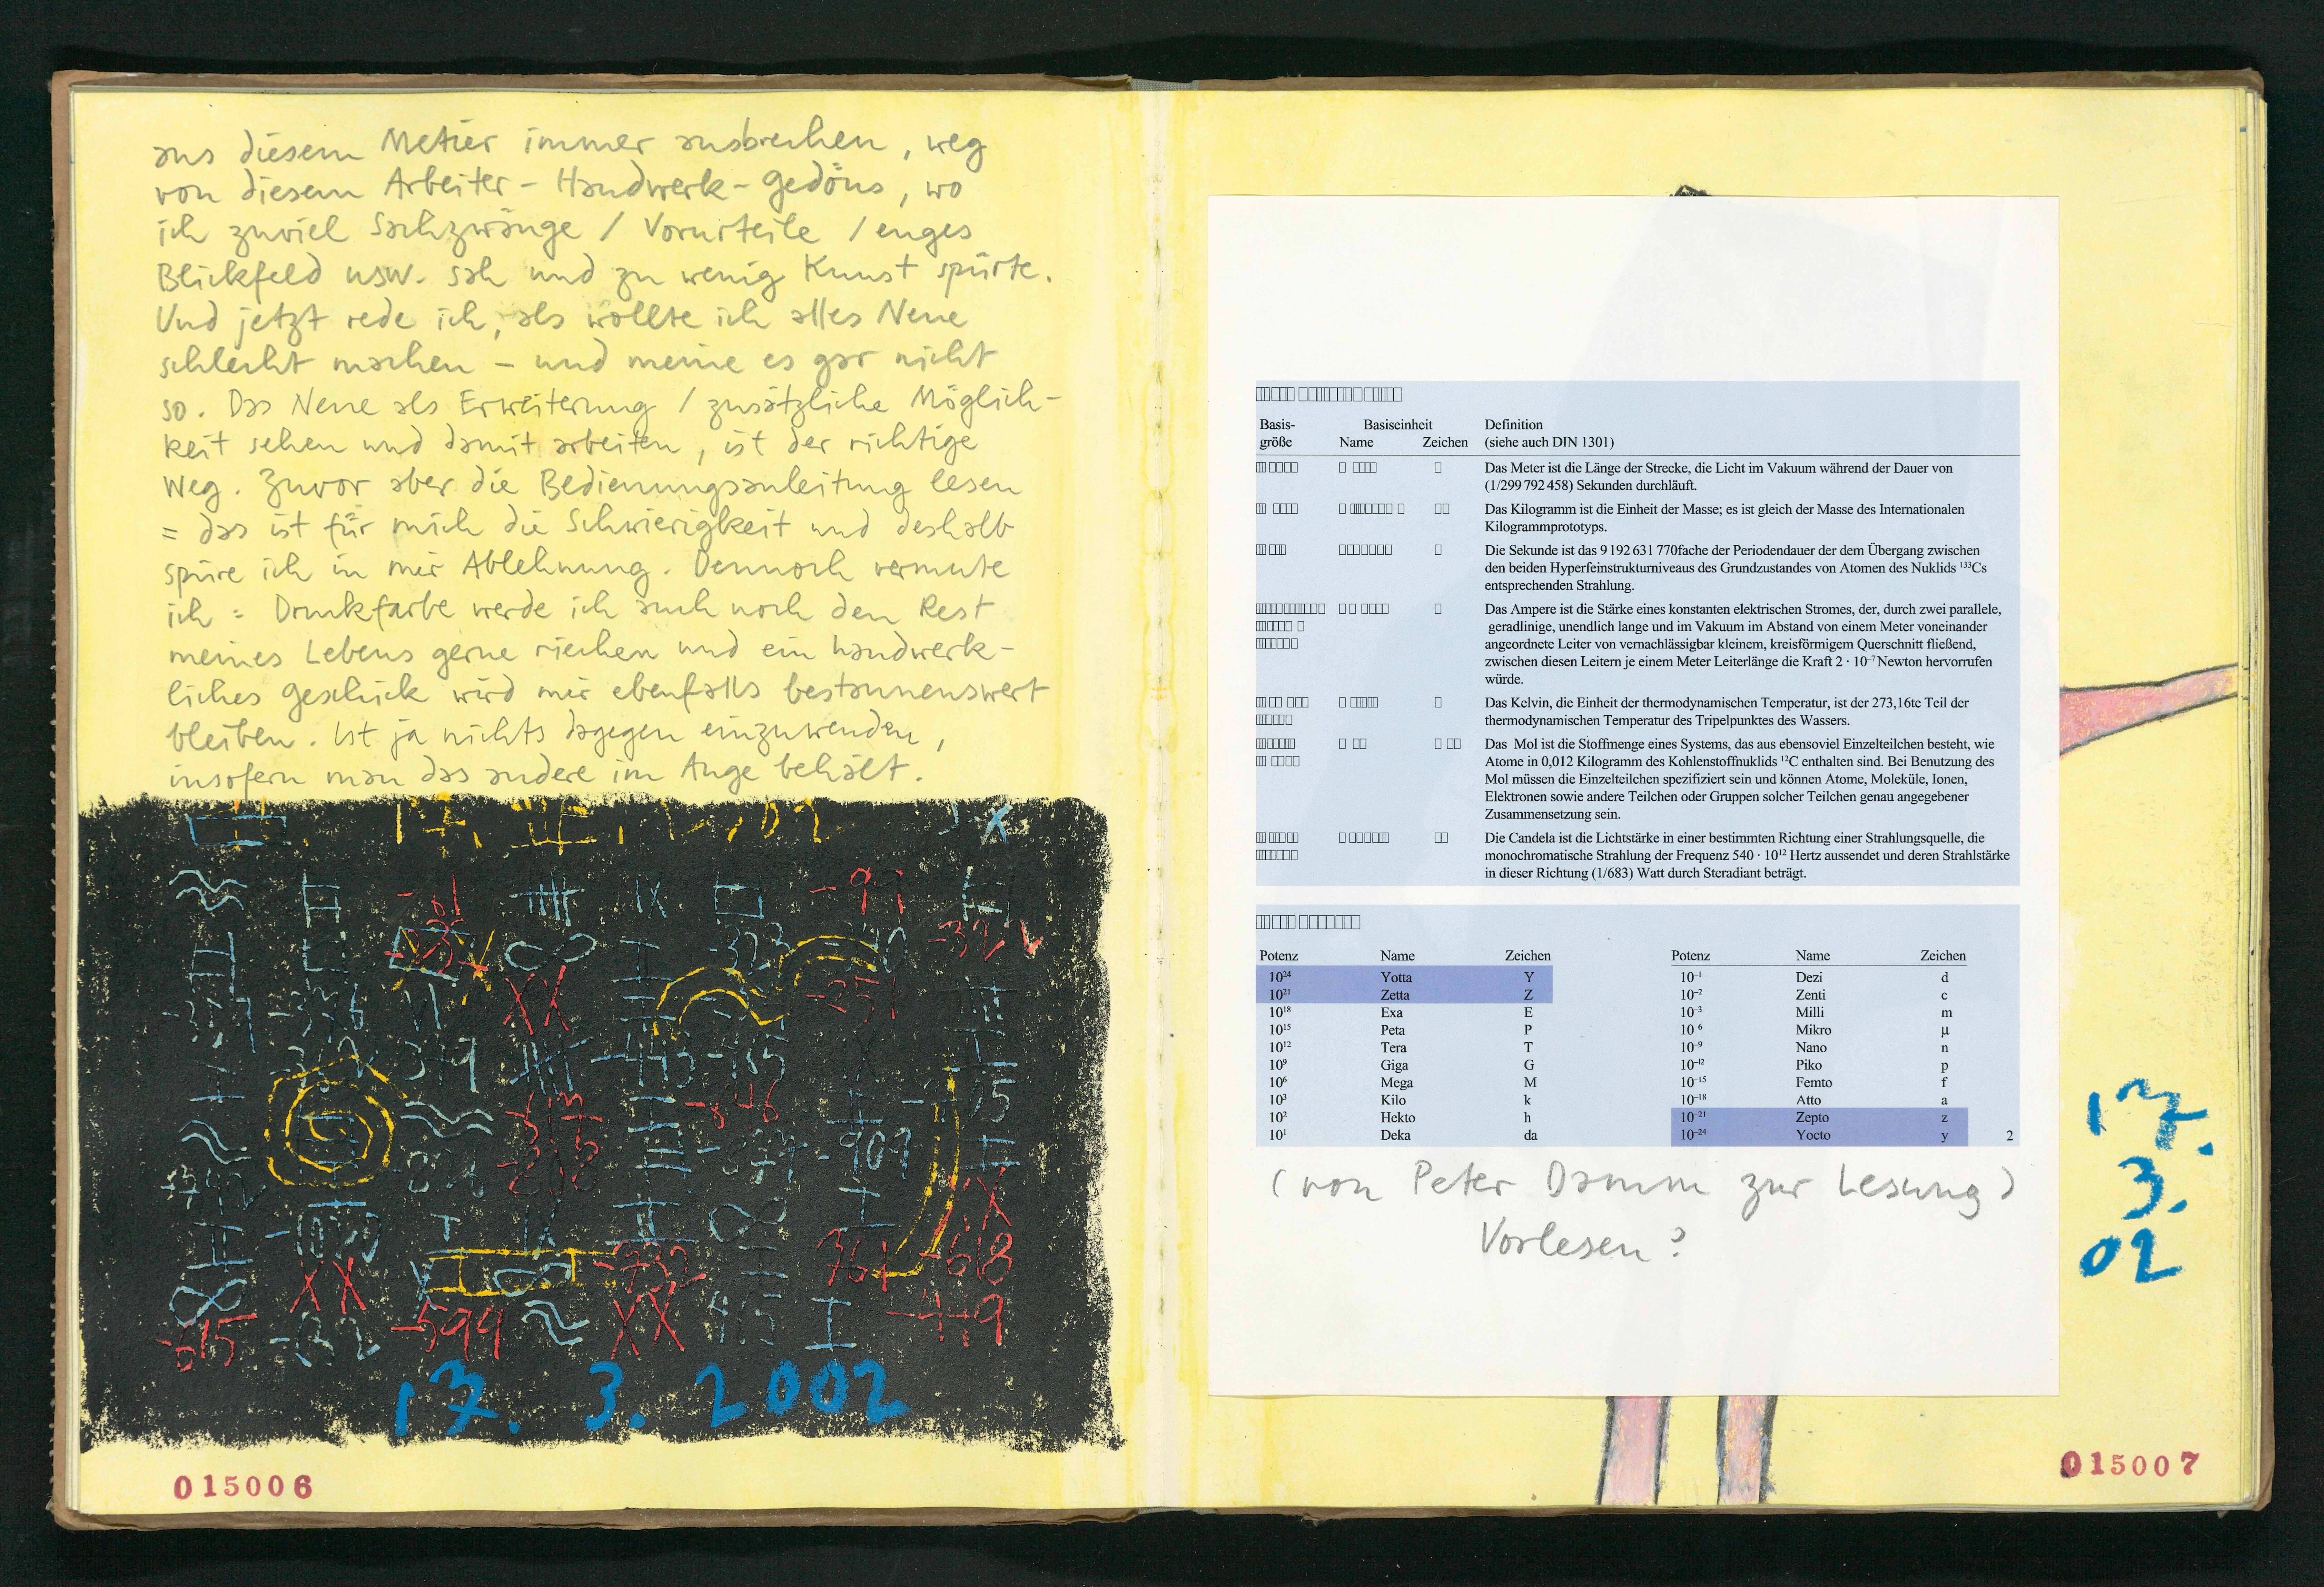 aus diesem Metier immer ausbrechen, weg
von diesem Arbeiter-Handwerk-Gedöns, wo
ich zuviel Sachzwänge / Vorurteile / enges
Blickfeld usw. sah und zu wenig Kunst spürte.
Und jetzt rede ich, als wollte ich alles Neue
schlecht machen – und meine es gar nicht
so. Das Neue als Erweiterung / zusätzliche Möglich-
keit sehen und damit arbeiten, ist der richtige
Weg. Zuvor aber die Bedienungsanleitung lesen
= das ist für mich die Schwierigkeit und deshalb
spüre ich in mir Ablehnung. Dennoch vermute
ich = Druckfarbe werde ich auch noch den Rest
meines Lebens gerne riechen und ein handwerk-
liches Geschick wird mir ebenfalls bestaunenswert
bleiben. Ist ja nichts dagegen einzuwenden,
insofern man das andere im Auge behält.
-91
-323
-32
-376
379
-443 -415
-846
-909
-618
-615 -32 -599 415 -449
17. 3. 2002
015006
Basis- Basiseinheit Definition
größe Name Zeichen (siehe auch DIN 1301)
Das Meter ist die Länge der Strecke, die Licht im Vakuum während der Dauer von
(1/299 792 458) Sekunden durchläuft.
Das Kilogramm ist die Einheit der Masse; es ist gleich der Masse des Internationalen
Kilogrammprototyps.
Die Sekunde ist das 9 192 631 770fache der Periodendauer der dem Übergang zwischen
den beiden Hyperfeinstrukturniveaus des Grundzustandes von Atomen des Nuklids ¹³³Cs
entsprechenden Strahlung.
Das Ampere ist die Stärke eines konstanten elektrischen Stromes, der, durch zwei parallele,
geradlinige, unendlich lange und im Vakuum im Abstand von einem Meter voneinander
angeordnete Leiter von vernachlässigbar kleinem, kreisförmigem Querschnitt fließend,
zwischen diesen Leitern je einem Meter Leiterlänge die Kraft 2 · 10⁻⁷ Newton hervorrufen
würde.
Das Kelvin, die Einheit der thermodynamischen Temperatur, ist der 273,16te Teil der
thermodynamischen Temperatur des Tripelpunktes des Wassers.
Das Mol ist die Stoffmenge eines Systems, das aus ebensoviel Einzelteilchen besteht, wie
Atome in 0,012 Kilogramm des Kohlenstoffnuklids ¹²C enthalten sind. Bei Benutzung des
Mol müssen die Einzelteilchen spezifiziert sein und können Atome, Moleküle, Ionen,
Elektronen sowie andere Teilchen oder Gruppen solcher Teilchen genau angegebener
Zusammensetzung sein.
Die Candela ist die Lichtstärke in einer bestimmten Richtung einer Strahlungsquelle, die
monochromatische Strahlung der Frequenz 540 · 10¹² Hertz aussendet und deren Strahlstärke
in dieser Richtung (1/683) Watt durch Steradiant beträgt.
Potenz Name Zeichen Potenz Name Zeichen
10²⁴ Yotta Y 10⁻¹ Dezi d
10²¹ Zetta Z 10⁻² Zenti c
10¹⁸ Exa E 10⁻³ Milli m
10¹⁵ Peta P 10 ⁶ Mikro µ
10¹² Tera T 10⁻⁹ Nano n
10⁹ Giga G 10⁻¹² Piko p
10⁶ Mega M 10⁻¹⁵ Femto f
10³ Kilo k 10⁻¹⁸ Atto a
10² Hekto h 10⁻²¹ Zepto z
10¹ Deka da 10⁻²⁴ Yocto y 2
(von Peter Damm zur Lesung)
Vorlesen?
17.
3.
02
015007